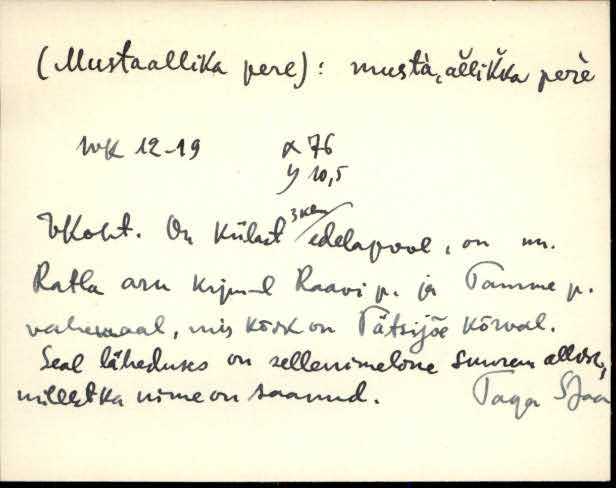 (Mustaallika pere): mustà, aĺĺikka pere
WK 12-19 x 76
y 10,5
Vkoht. On külast 3 km edelapool, on nn.
Ratla aru Raavi p. ja Tamme p.
vahemaal, mis kõik on Tätsijõe kõrval.
Seal läheduses on sellenimeline suurem allikas,
millest ka nime on saanud. Taga